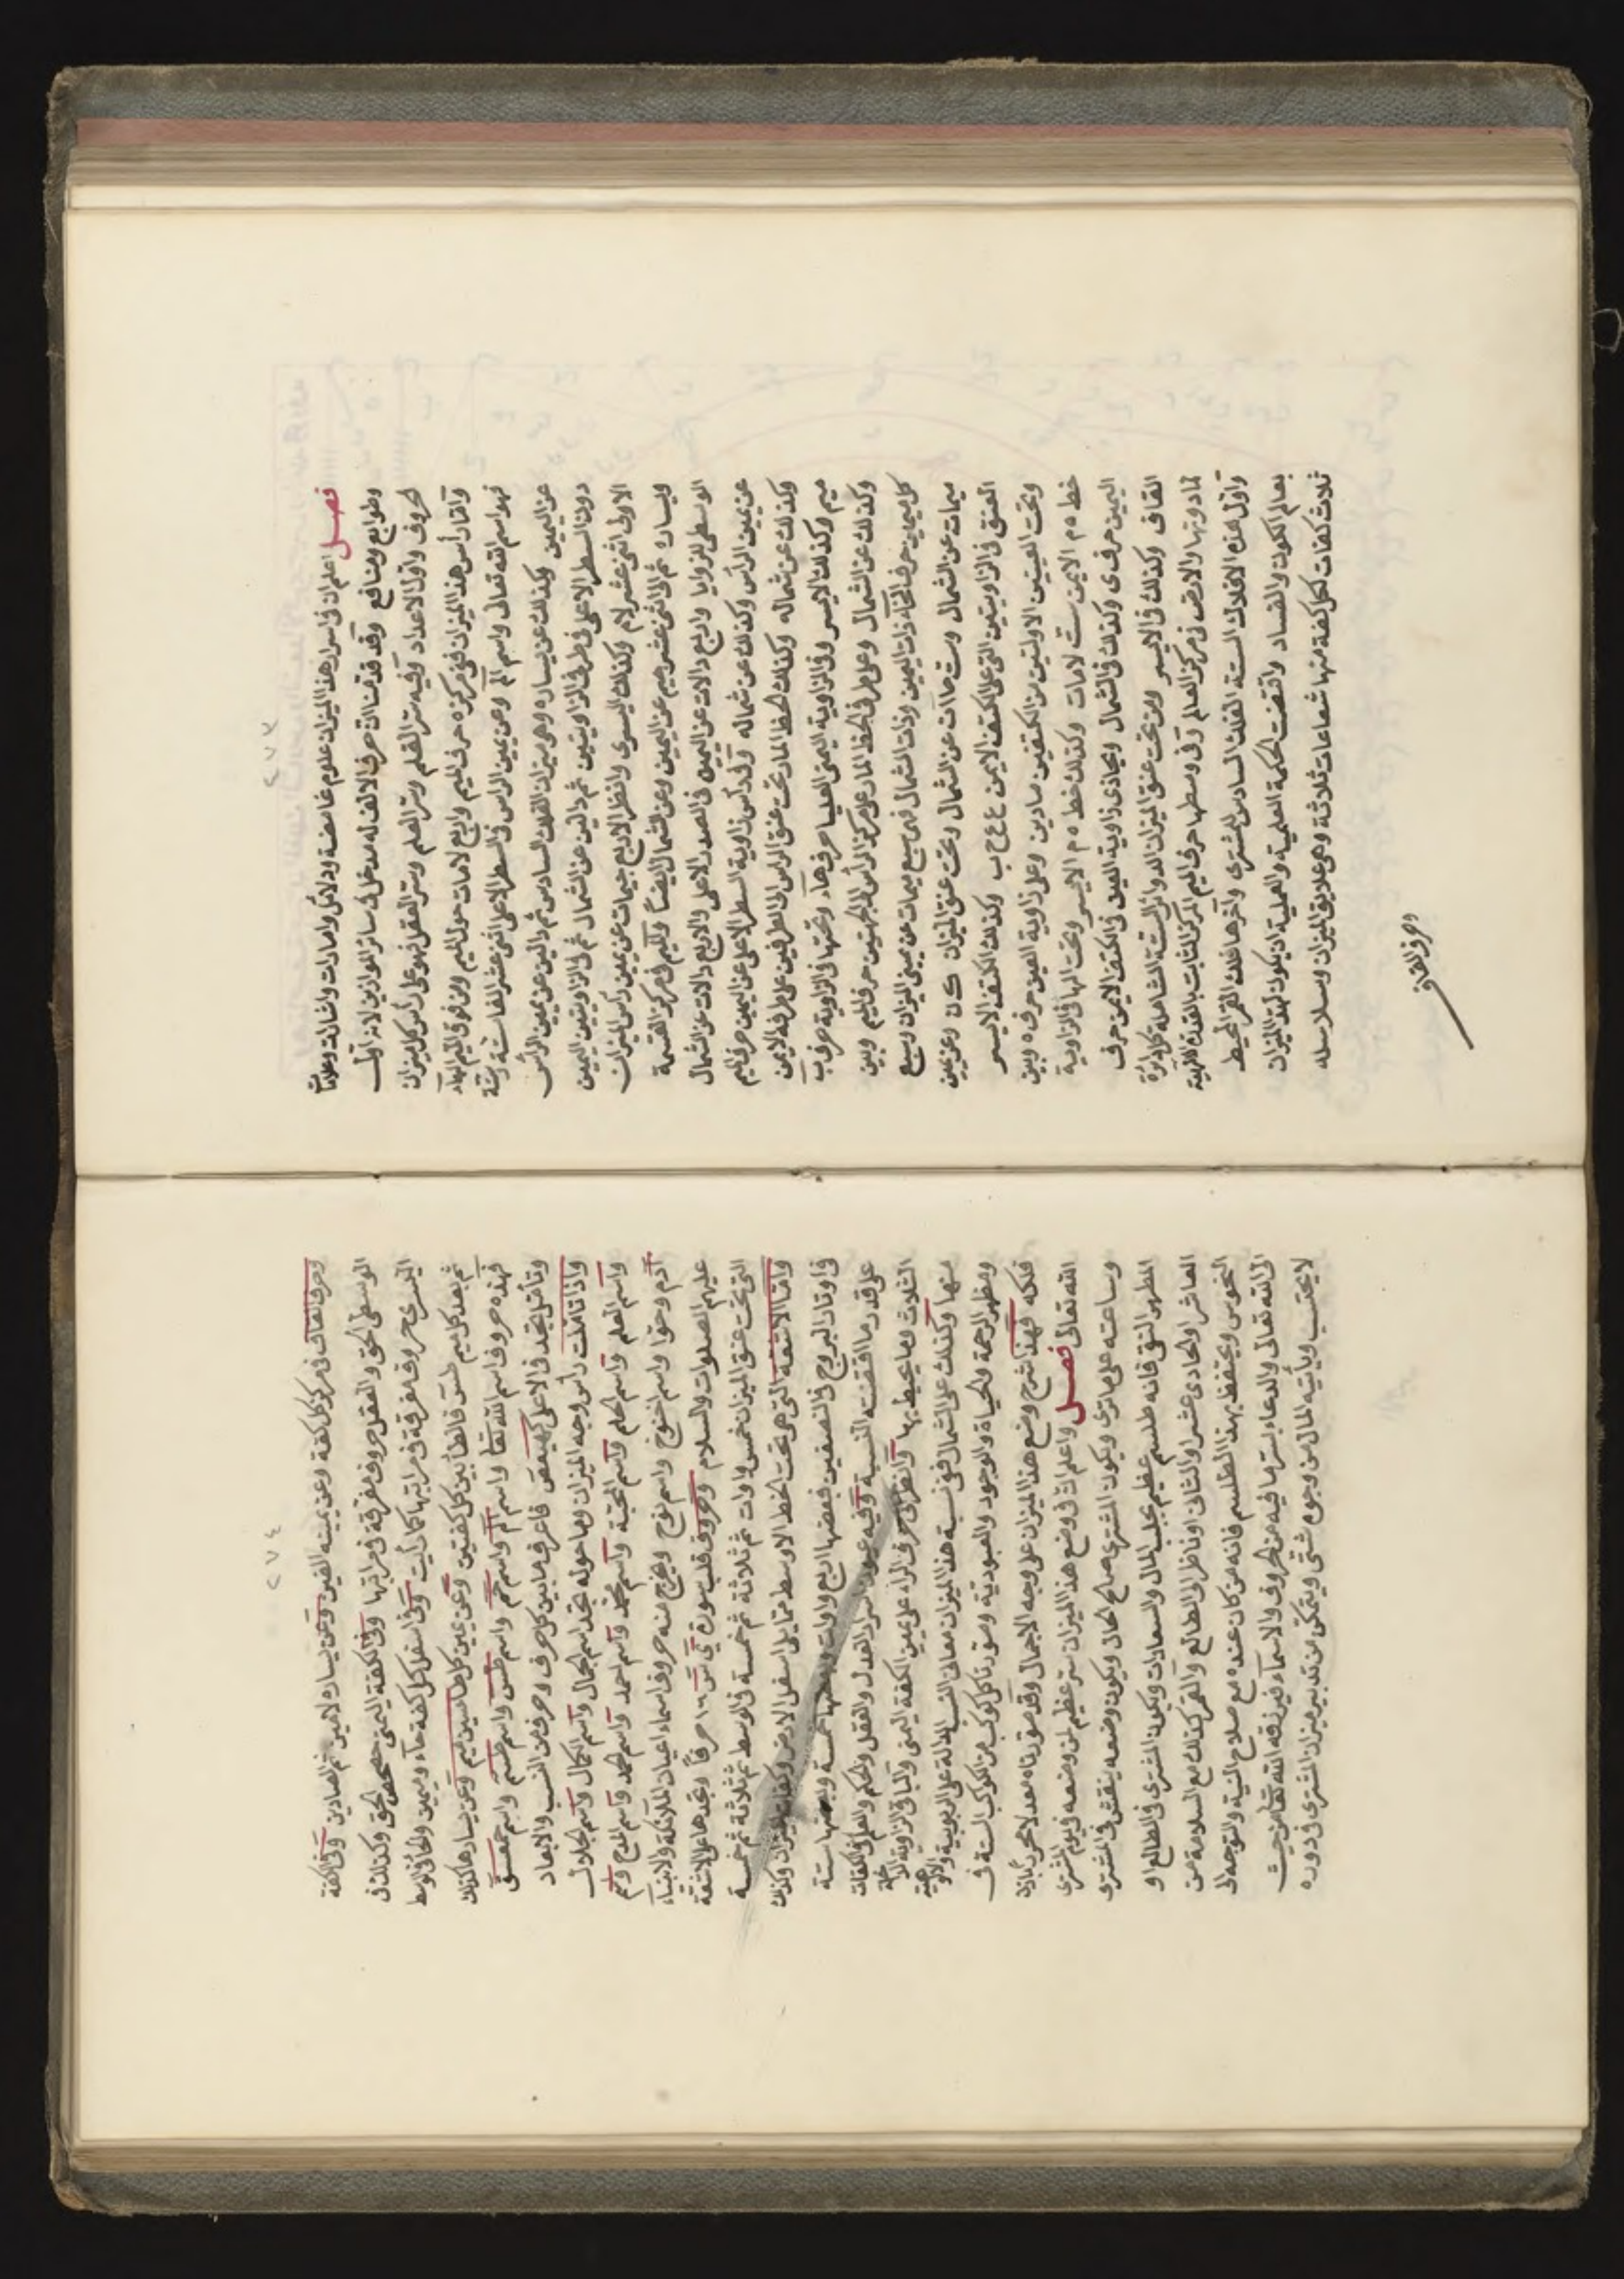 ٢٧٣
فصل اعلم ان في اسرار هذا الميزان علوم غامضة ودلائل وامارات واشارات وعلامات
وطوابع ومنافع وقد قدمنا ان حرف الالف له مدخل في سائر الموازين لانه اول
الحروف واول الاعداد وفيه سر القلم وسر العلم وسر العقل فهو على رأس كل ميزان
واما رأس هذا الميزان ففي مركزه حرف الميم واربع لامات حول الميم ومن فوق الميم الهاء
فهو اسم الله تعالى واسم الم وعن يمين الراس في السطر الاعلى اثنى عشر الفا ستة وستة
عن اليمين وكذلك عن يساره وهي ميزان الفلك السادس ثم دالين عن يمين الرأس
دون السطر الاعلى في طرف الزاويتين ثم دالين عن الشمال ثم في الزاويتين اليمين
الاولى اثنى عشر لام وكذلك اليسرى وانظر الاربع جيمات عن يمين رأس الميزان
ويساره ثم الى اثنى عشر جيم عن اليمين وعن الشمال ايضا والميم في مركز القسمة
الوسطى للزوايا واربع دالات عن اليمين في الصدر الاعلى والاربع دالات عن الشمال
عن يمين الراس وكذلك عن شماله وفي رأس زاوية السطر الاعلى عن اليمين حرف الميم
وكذلك عن شماله وكذلك الخط المار تحت عنق الراس الى الطرفين على طرفه الايمن
ميم وكذلك الايسر وفي الزاوية اليمنى العليا حرف هاء وتحتها في الزاوية حرف ب
وكذلك عن الشمال وعلى طرف الخط المار على مركز الرأس الى الجهتين حرف الميم وبين
كل ميمين حرف الخاء ذات اليمين وذات الشمال فهي سبع ميمات عن يمين الميزان وسبع
ميمات عن الشمال وست حاات عن الشمال وتحت عنق الميزان ك ن وعن يمين
العنق في الزاويتين التي على الكتف الايمن ع ع ب وكذلك الكتف الايسر
وتحت العينين الاولتين من الكتفين صادين وعلى زاوية العين حرف ه وبين
خط ه م الايمن ست لامات وكذلك خط ه م الايسر وتحت الها في الزاوية
اليمين حرف ى وكذلك في الشمال ويحاذي زاوية العين في الكتف الايمن حرف
القاف وكذلك في الايسر ومن تحت عنق الميزان الدوائر الست الشاملة كل دائرة
لما دونها والارض في مركز العالم وفي وسطها حرف الميم المركز الثابت بالقدرة الالهية
واول هذه الافلاك الستة الفلك السادس المشترى واخرها فلك القمر المحيط
بعالم الكون والفساد واقتضت الحكمة العلمية والعملية ان يكون لهذا الميزان
ثلاث كفات لكل كفة منها شعاعات ثلاثة وهي علايق الميزان وسلاسله
وحرف القاف
٢٧٤
وحرف القاف في مركز كل كفة وعن يمينه العين وعن يساره لامين ثم الصادين وفي الكفة
الوسطى الحق والعقل حروف مفرقة في مراتبها وفي الكفة اليمنى حصحص الحق وكذلك في
اليسرى حروف مفرقة في مراتبها كما رأيت وفي اسفل كل كفة هاء وميمين والحا في الوسط
ثم بعد كل ميم طس فالطا بين كل كفتين وعن يمين كل طا سين ميم وعن يسارها كذلك
فهذه حروف اسم الله تعالى واسم الم واسم حم واسم طس واسم طسم واسم حمعسق
وتأمل تجد في الاعلى كهيعص فاعرف ما بين كل حرف وحرف من النسب والابعاد
واذا تاملت رأس وجه الميزان وما حوله تجد اسم الجمال واسم الكمال واسم الجلال
واسم العلم واسم الحلم واسم المحبة واسم محمد واسم احمد واسم الحمد واسم المدح واسم
آدم وحوا واسم اخنوخ واسم نوح ويخرج منه حروف اسماء اعيان الملائكة والانبياء
عليهم الصلوات والسلام وحروف قلب سورة يس ١٦ حرفا وتجدها على الاشعة
التي تحت عنق الميزان خمس واوات ثم ثلاثة ثم خمسة في الوسط ثم ثلاثة ثم خمسة
واما الاشعة التي هي تحت الخط الاوسط مما يلي اسفل الارض وكفات الميزان وكذلك
في اوتاد البروج في النصفين فبعضها اربع واوات وبعضها خمسة وبعضها ستة
على قدر ما اقتضته النسبة وفيه عيون اسرار العدل والعقل والحكم والعلم في الكفات
الثلاث وما يحيط بها وانظر الى حرف الراء على يمين الكفة اليمنى والباقي الزاوية الداخلة
منها وكذلك على الشمال ففي نسبة هذا الميزان معاني النسب الدالة على الربوبية والالوهية
ومظهر الرحمة والحياة والوجود والعبودية وصورتا كل كوكب من الكواكب الستة في
فلكه فهذا شرح وضع هذا الميزان على وجه الاجمال وقد صورناه معدلا محررا باذن
الله تعالى فصل واعلم ان في وضع هذا الميزان سر عظيم لمن وضعه في يوم المشترى
وساعته على ما ترى ويكون المشترى صالح الحال ويكون وضعه ينقش في المشترى
المطهر النقى فانه طلسم عظيم يجلب المال والسعادات ويكون المشترى في الطالع او
العاشر او الحادى عشر او الثانى او ناظر الى الطالع والقمر كذلك مع السلامة من
النحوس ويحتفظ بهذا الطلسم فانه من كان عنده مع صلاح النية والتوجه الى
الى الله تعالى والدعاء بسر ما فيه من الحروف والاسماء فيرزقه الله تعالى من حيث
لا يحتسب ويأتيه المال من وجوه شتى ويتمكن من تدبير ميزان المشترى في دوره